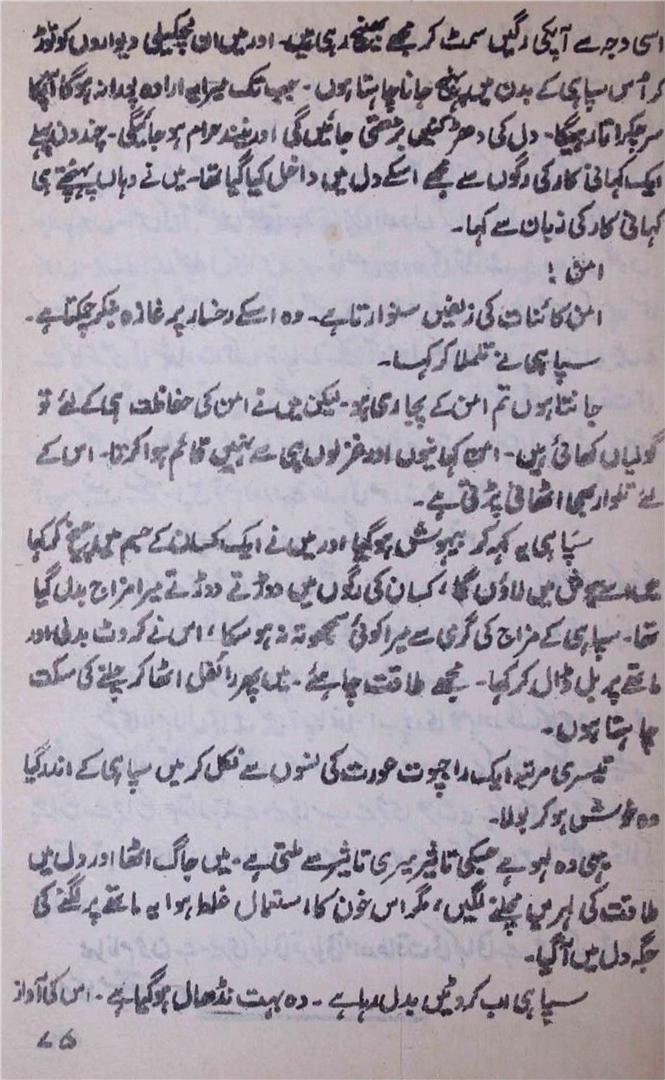 اسی وجہ سے آپکی رگیں سمٹ کر مجھے بھینچ رہی ہیں۔ اور میں ان لچکیلی دیواروں کو توڑ
کر اُس سپاہی کے بدن میں پہنچ جانا چاہتا ہوں۔ جب تک میرا یہ ارادہ پورا نہ ہوگا آپکا
سر چکراتا رہیگا۔ دل کی دھڑکنیں بڑھتی جائیں گی اور نیند حرام ہو جائیگی۔ چند دن پہلے
ایک کہانی کار کی رگوں سے مجھے اسکے دل میں داخل کیا گیا تھا۔ میں نے وہاں پہنچتے ہی
کہانی کار کی زبان سے کہا۔
امن !
امن کائنات کی زلفیں سنوارتا ہے۔ وہ اسکے رخسار پر غازہ بنکر چمکتا ہے۔
سپاہی نے تلملا کر کہا۔
جانتا ہوں تم امن کے پجاری ہو۔ لیکن میں نے امن کی حفاظت ہی کے لئے تو
گولیاں کھائی ہیں۔ امن کہانیوں اور غزلوں ہی سے نہیں قائم ہوا کرتا۔ اس کے
لئے تلوار بھی اٹھانی پڑتی ہے۔
سپاہی یہ کہہ کر بیہوش ہوگیا اور میں نے ایک کسان کے جسم میں پہنچ کر کہا
میں اسے ہوش میں لاؤں گا، کسان کی رگوں میں دوڑتے دوڑتے میرا مزاج بدل گیا
تھا۔ سپاہی کے مزاج کی گرمی سے میرا کوئی سمجھوتہ نہ ہو سکا، اس نے کروٹ بدلی اور
ماتھے پر بل ڈال کر کہا۔ مجھے طاقت چاہئے۔ میں پھر رائفل اٹھا کر چلنے کی سکت
چاہتا ہوں۔
تیسری مرتبہ ایک راجپوت عورت کی نسوں سے نکل کر میں سپاہی کے اندر گیا
وہ خوش ہو کر بولا۔
یہی وہ لہو ہے جسکی تاثیر میری تاثیر سے ملتی ہے۔ میں جاگ اٹھا اور دل میں
طاقت کی لہریں مچلنے لگیں، مگر اس خون کا استعمال غلط ہوا یہ ماتھے پر لگنے کی
جگہ دل میں آگیا۔
سپاہی اب کروٹیں بدل رہا ہے۔ وہ بہت نڈھال ہوگیا ہے۔ اس کی آواز
۷۵